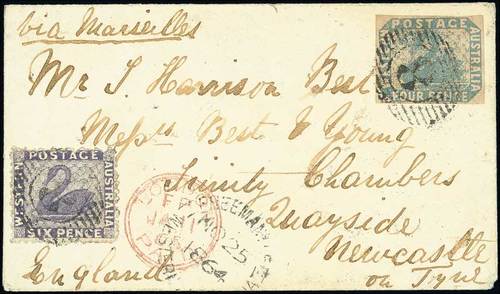 via Marseilles
POSTAGE
AUSTRALIA
FOUR PENCE
Mr J. Harrison Best
Messrs Best & Young
Trinity Chambers
Quayside
Newcastle
on Tyne
England
WESTERN
POSTAGE
AUSTRALIA
SIX PENCE
FREEMANTLE
25
1864